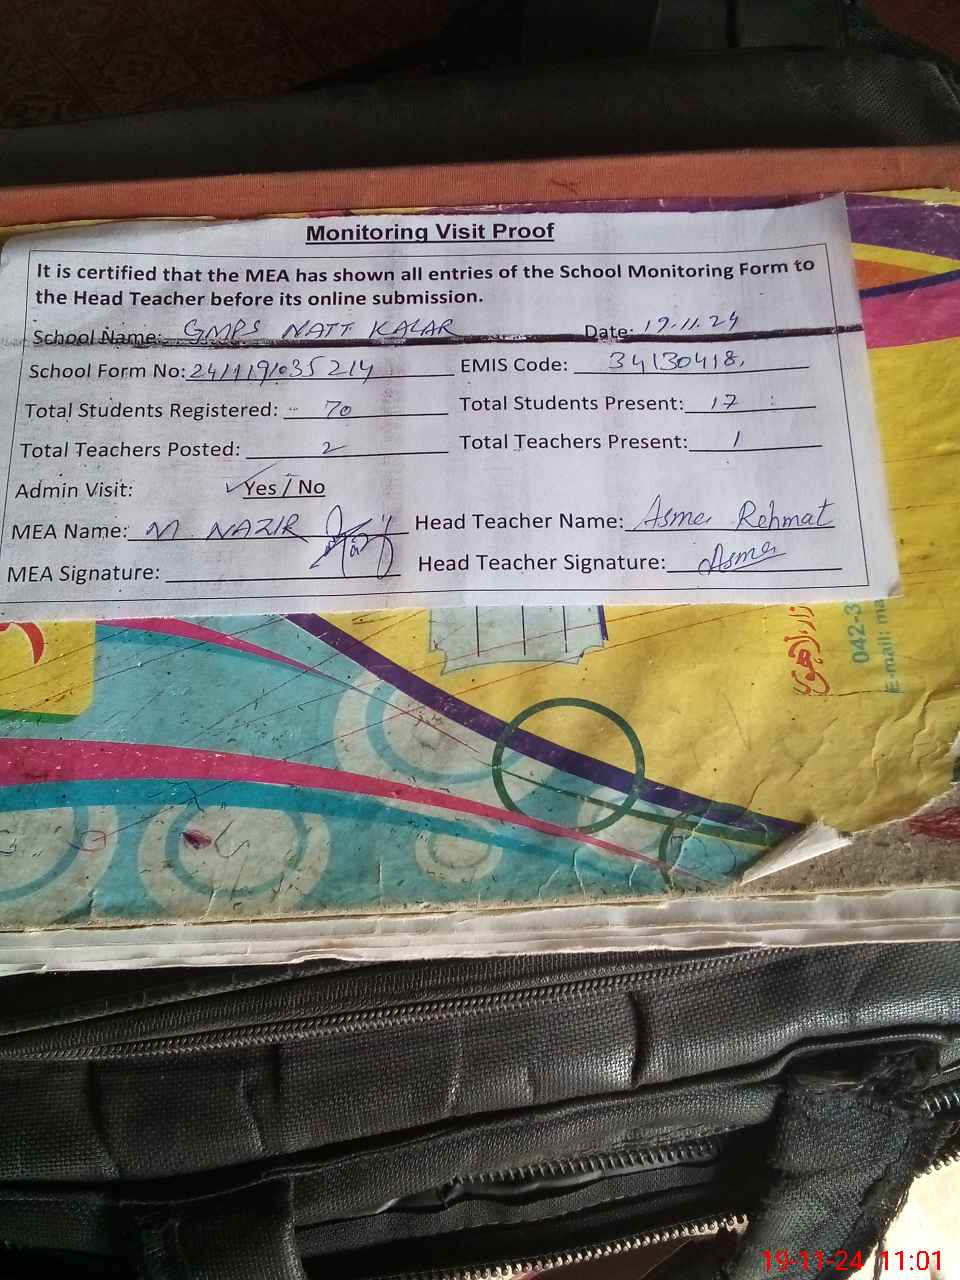 Monitoring Visit Proof
It is certified that the MEA has shown all entries of the School Monitoring Form to
the Head Teacher before its online submission.
School Name: GMPS NATT KALAR Date: 19.11.24
School Form No: 2411191035214 EMIS Code: 34130418
Total Students Registered: 70 Total Students Present: 17
Total Teachers Posted: 2 Total Teachers Present: 1
Admin Visit: Yes / No
MEA Name: M NAZIR Head Teacher Name: Asma Rehmat
MEA Signature: Head Teacher Signature: Asma
لاہور
042-3
E-mail: ma
19-11-24 11:01